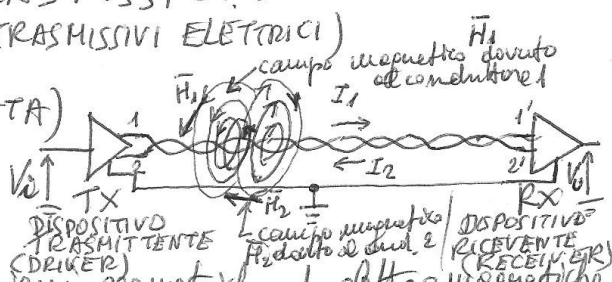 TRASMISSIVI ELETTRICI)
H̄1
campo magnetico dovuto
al conduttore 1
H̄1
I1
TA)
1
1'
2
2'
I2
Vi
TX
H̄2
RX
DISPOSITIVO
TRASMITTENTE
(DRIVER)
campo magnetico
H̄2 dovuto al cond. 2
DISPOSITIVO
RICEVENTE
(RECEIVER)